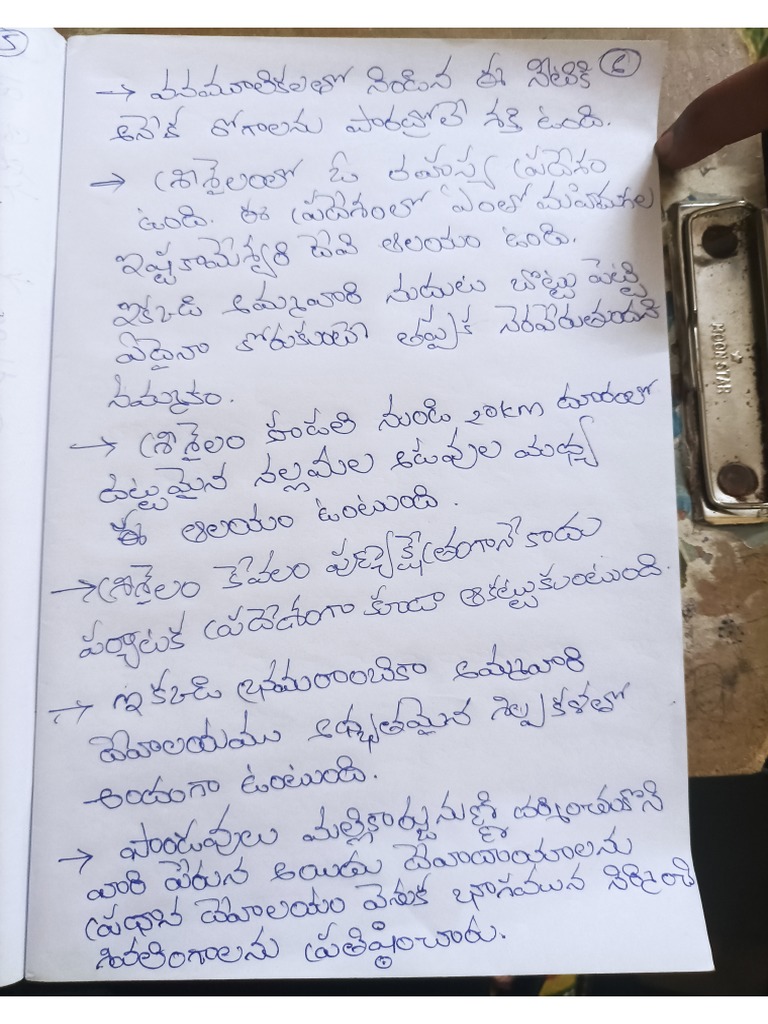 5
6
→ వనమూలికలలతో నిండిన ఈ నీటికి
అనేక రోగాలను పారద్రోలే శక్తి ఉంది.
→ శ్రీశైలంలో ఓ రహస్య ప్రదేశం
ఉంది. ఈ ప్రదేశంలో ఎంతో మహిమగల
ఇష్టకామేశ్వరి దేవి ఆలయం ఉంది.
ఇక్కడి అమ్మవారి నుదుటు బొట్టు పెట్టి
ఏదైనా కోరుకుంటే తప్పక నెరవేరుతుందని
నమ్మకం.
→ శ్రీశైలం నుండి 20km దూరంలో
దట్టమైన నల్లమల అడవుల మధ్య
ఈ ఆలయం ఉంటుంది.
→ శ్రీశైలం కేవలం పుణ్యక్షేత్రంగానే కాదు
పర్యాటక ప్రదేశంగా కూడా ఆకట్టుకుంటుంది.
→ ఇక్కడి భ్రమరాంబికా అమ్మవారి
దేవాలయము అద్భుతమైన శిల్పకళతో
అందంగా ఉంటుంది.
→ పాండవులు మల్లికార్జునుణ్ణి దర్శించుకొని
వారి పేరున అయిదు దేవాలయాలను
ప్రధాన దేవాలయం వెనుక భాగమున నిర్మించి
శివలింగాలను ప్రతిష్ఠించారు.
MOON STAR